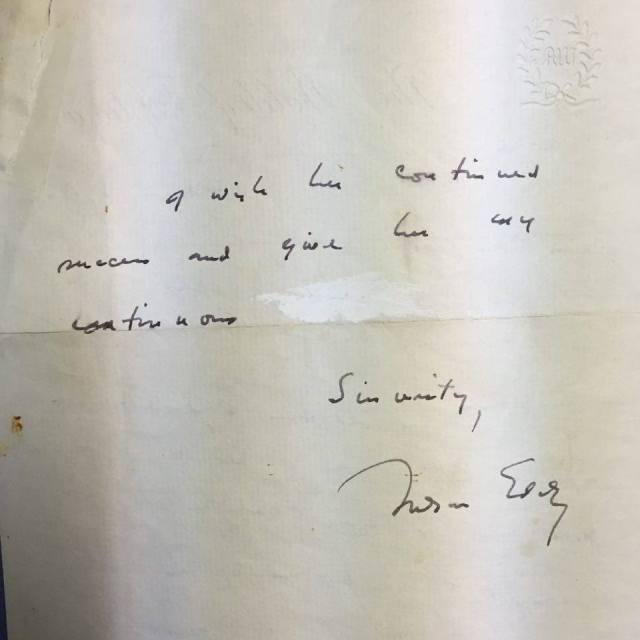 I wish her continued
success and give her my
continuous
Sincerely,